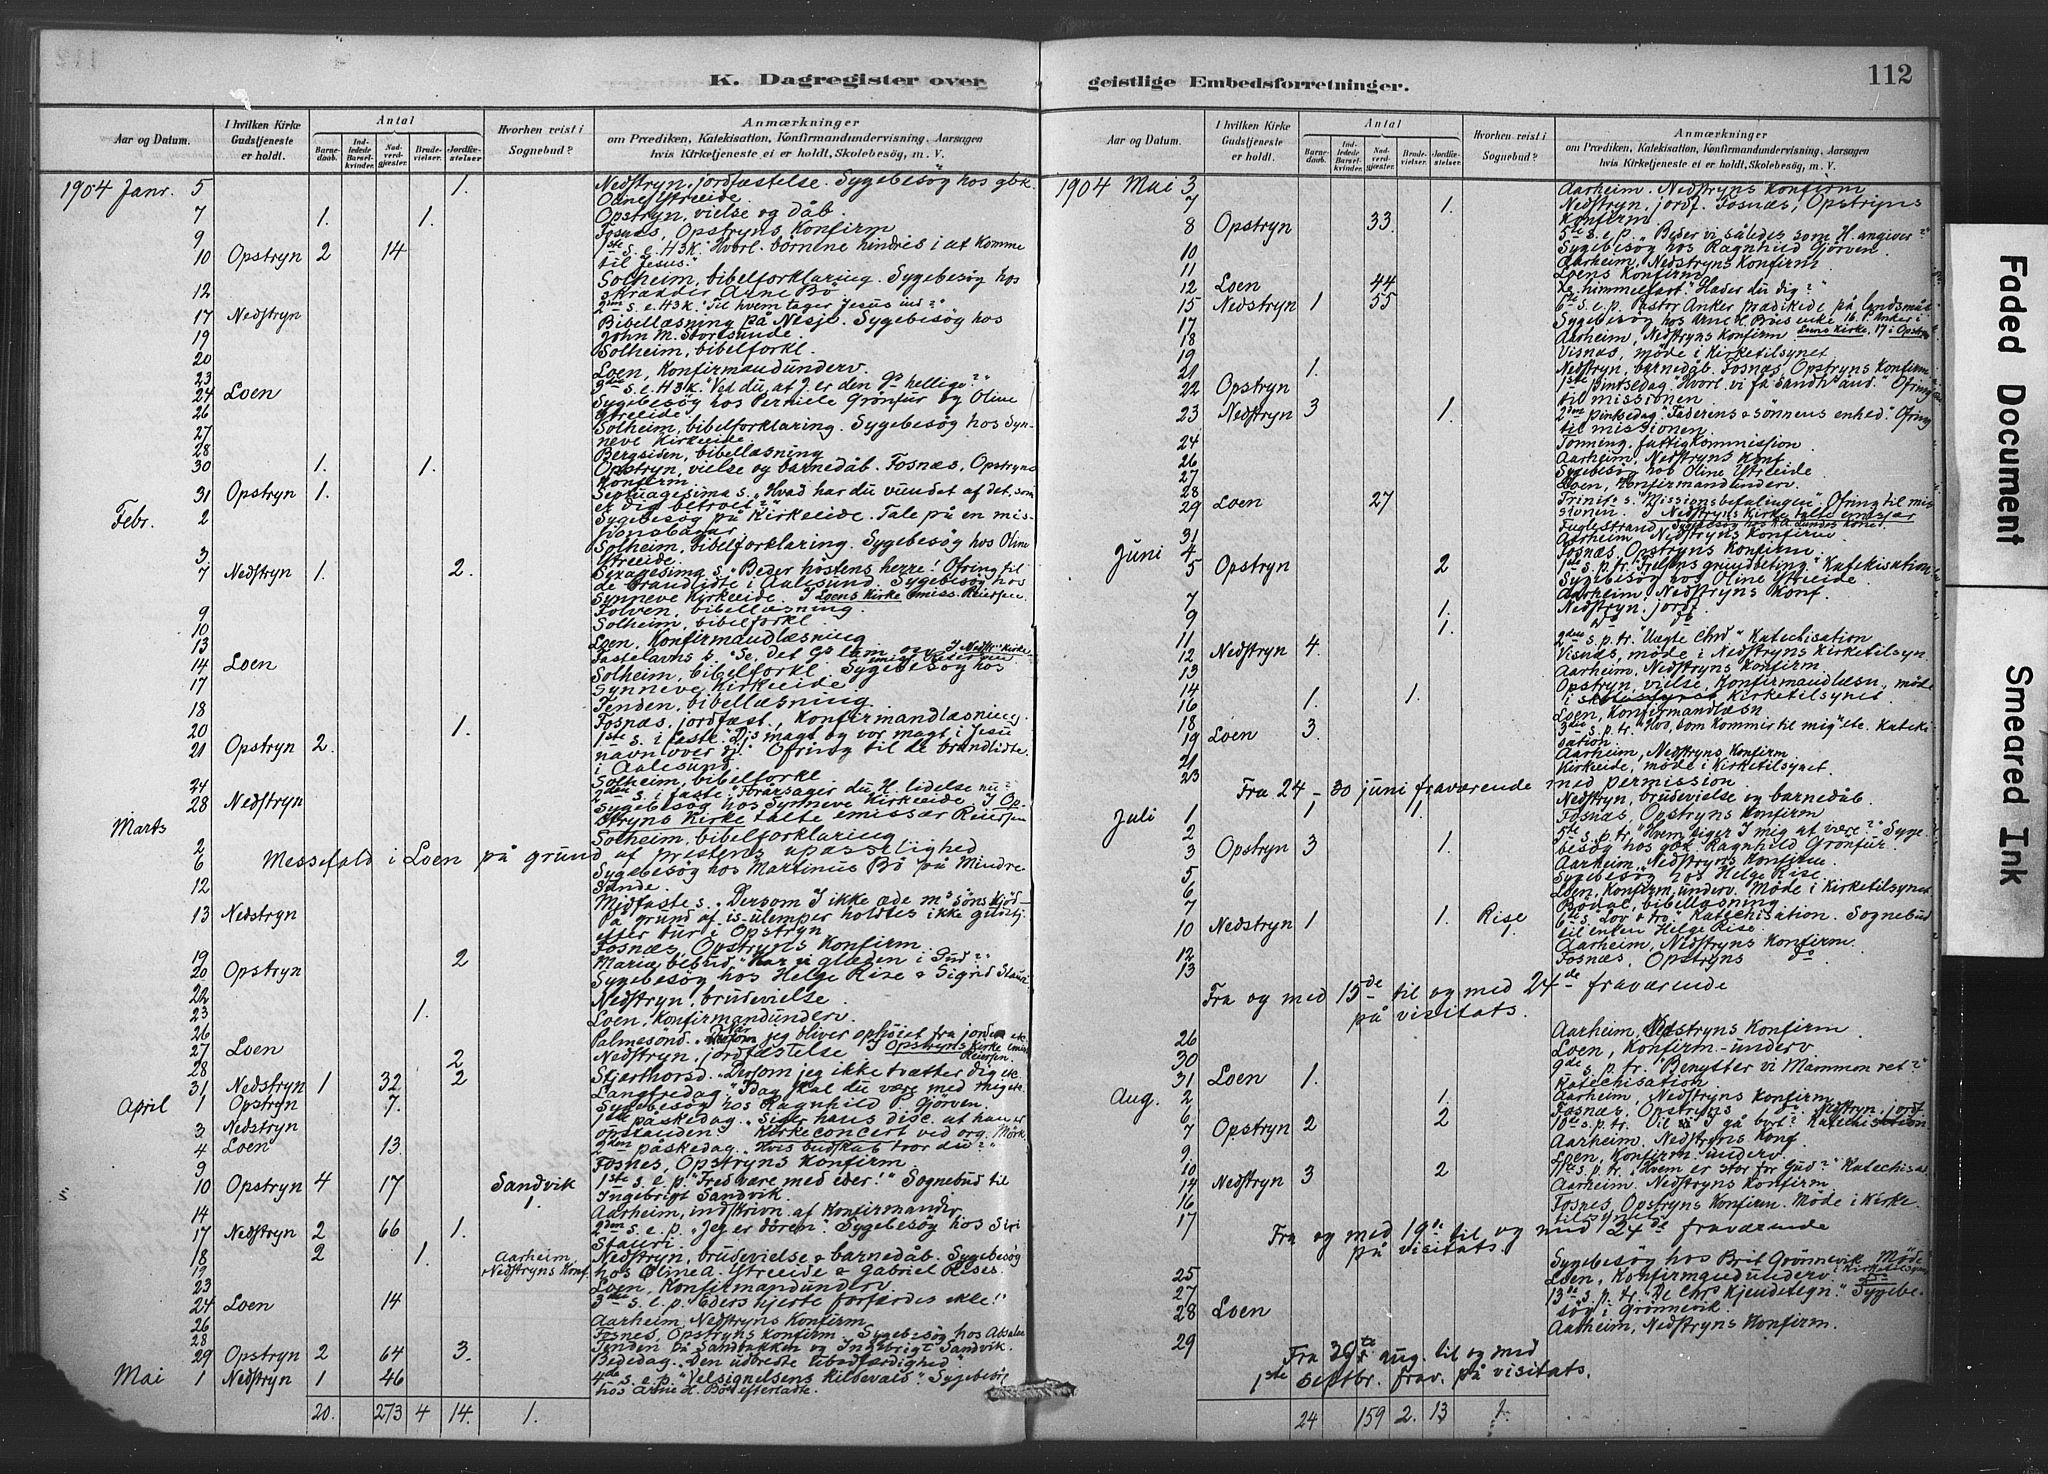 K. Dagregister over
Aar og Datum.
I hvilken Kirke Gudstjeneste er holdt.
Antal
Barnedaab.
Indledede Barselkvinder.
Nadverdgjæster.
Brudevielser.
Jordfæstelser.
Hvorhen reist i Sognebud?
Anmærkninger
om Prædiken, Katekisation, Konfirmandundervisning, Aarsagen
hvis Kirketjeneste ei er holdt, Skolebesøg, m. V.
1904 Janr. 5 1. Nedstryn, jordfæstelse. Sygebesøg hos gbk.
Ytreeide.
7 1. 1. Opstryn, vielse og dåb.
9 Fosnæs, Opstryns Konfirm
10 Opstryn 2 14 1ste s. e. H3K. "Hvorl. børnene hindres i at komme
til Jesus."
Solheim, bibelforklaring. Sygebesøg hos
12 skrædder Arne Bø
2den s. e. H3K. "Til hvem tager Jesus ind?"
17 Nedstryn Bibellæsning på Nesje. Sygebesøg hos
19 John M. Storesunde.
20 Solheim, bibelforkl.
23 Loen, Konfirmandunderv.
24 Loen 3die s. e. H3K. "Ved du, at J. er den Gs hellige?"
26 Sygebesøg hos Pernille Grønfur og Oline
Ytreeide
27 Solheim, bibelforklaring. Sygebesøg hos Synneve Kirkeeide.
28 Bergsiden, bibellæsning
30 1. 1. Opstryn, vielse og barnedåb. Fosnæs, Opstryns
Konfirm.
31 Opstryn 1. Septuagesima s. "Hvad har du vundet af det, som
er dig betroet?"
Febr. 2 Sygebesøg på Kirkeeide. Tale på en missionsbåsar
3 Solheim, bibelforklaring. Sygebesøg hos Oline
Ytreeide.
7 Nedstryn 1. 2. Sexagesima s. "Beder høstens herre! Ofring til
de brandlidte i Aalesund. Sygebesøg hos
Synneve Kirkeeide. I Loens Kirke emiss. Reiersen.
9 Tolven, bibellæsning.
10 Solheim, bibelforkl.
13 Loen, Konfirmandlæsning
14 Loen Fastelavns s. "Se, det Gs lam, I Nedstr. Kirke
17 Solheim, bibelforkl. Sygebesøg hos
Synneve Kirkeeide
18 Tenden, bibellæsning
20 1. Fosnæs, jordfæst., Konfirmandlæsning
21 Opstryn 2. 1ste s. i faste. "Djs magt og vor magt i Jesu
navn over dj." Ofring til de brandlidte
i Aalesund.
24 Solheim, bibelforkl.
28 Nedstryn 2den s. i faste. "Forårsager du H. lidelse nu?"
Sygebesøg hos Synneve Kirkeeide I Opstryns Kirke talte emissær Reiersen
Marts 2 Solheim, bibelforklaring
6 Messefald i Loen på grund af prestens upasselighed
12 Sygebesøg hos Martinus Bø på Mindre
Sunde.
13 Nedstryn Midfaste s. "Dersom I ikke æde ms søns kjød
På grund af is-ulemper holdtes ikke gudstj
efter tur i Opstryn
19 Fosnæs, Opstryns Konfirm.
20 Opstryn 2 Mariæ bebud "Har vi glæden i Gud?"
22 Sygebesøg hos Helge Rise & Sigrid Stauri
23 1. Nedstryn, brudevielse.
26 Loen, Konfirmandunderv
27 Loen Palmesønd. "Når jeg bliver ophøiet fra jorden etc.
28 2 Nedstryn, jordfæstelse I Opstryns Kirke emiss Reiersen.
31 Nedstryn 1 32 2 Skjærthorsd. "Dersom jeg ikke tvætter dig etc
April 1 Opstryn 7. Langfredag "Idag skal du være med mig etc.
Sygebesøg hos Ragnhild P Gjørven.
3 Nedstryn 1ste påskedag. "Siger hans disc. at han er
opstanden. Kirkeconcert ved org. Mørk.
4 Loen 13. 2den påskedag. "Hvis budskab tror du?"
9 Fosnes, Opstryns Konfirm
10 Opstryn 4 17 Sandvik 1. 1ste s. e. p. "Fred være med eder!" Sognebud til
Ingebrigt Sandvik.
14 Aarheim, indskrivn. af Konfirmander
17 Nedstryn 2 66 1. 2den s. e. p. "Jeg er døren". Sygebesøg hos Siri
Stauri.
18 2 1. Nedstryn, brudevielse & barnedåb. Sygebesøg
19 Aarheim, Nedstryns Konf. hos Oline A. Ytreeide & Gabriel Rises
23 Loen, Konfirmandunderv
24 Loen 14 3die s. e. p. "Eders hjerte forfærdes ikke!"
26 Aarheim, Nedstryns Konfirm
28 Fosnes, Opstryns Konfirm. Sygebesøg hos
29 Opstryn 2 64 3. Tenden på Sandbakken og Ingebrigt Sandvik.
Bededag. "Den uderste ubodfærdighed"
Mai 1 Nedstryn 1 46 4de s. e. p. "Velsignelsens kildevæld" Sygebesøg
hos Arne H. Bøs efterladte.
20. 273 4 14. 1.
geistlige Embedsforretninger.
112
Aar og Datum.
I hvilken Kirke Gudstjeneste er holdt.
Antal
Barnedaab.
Indledede Barselkvinder.
Nadverdgjæster.
Brudevielser.
Jordfæstelser.
Hvorhen reist i Sognebud?
Anmærkninger
om Prædiken, Katekisation, Konfirmandundervisning, Aarsagen
hvis Kirketjeneste ei er holdt, Skolebesøg, m. V.
1904 Mai 3 Aarheim. Nedstryns Konfirm
7 1. Nedstryn, jordf. Fosnæs, Opstryns
Konfirm
8 Opstryn 33. 5te s. e. p. "Beder vi således som H. angiver?"
Sygebesøg hos Ragnhild Gjørven.
10 Aarheim, Nedstryns Konfirm
11 Loens Konfirm
12 Loen 44 himmelfart "Hader du dig?"
15 Nedstryn 1 55 6te s. e. p. Pastor Anker prædikede på landsmål
17 Sygebesøg hos Arne H. Bøes enke 16. P. Anker i
18 Aarheim, Nedstryns Konfirm Loens Kirke, 17 i Opstryn
19 Visnæs, møde i Kirketilsynet
21 1. Nedstryn, barnedåb. Fosnæs, Opstryns Konfirm
22 Opstryn 1ste pintsedag "Hvorl. vi få Sandh. ånd." Ofring
til missionen
23 Nedstryn 3 1. 2den pintsedag. "Faderens & sønnens enhed." Ofring
til missionen.
24 Tonning, fattigkommission
26 Aarheim, Nedstryns Konf.
27 Sygebesøg hos Oline Ytreeide
28 Loen, Konfirmandunderv.
29 Loen 27 Trinit. s. "Missionsbefalingen" Ofring til missionen. I Nedstryns Kirke talte emissær
Fuglestrand. Sygebesøg hos R.A. Sundes kone.
31 Aarheim, Nedstryns Konfirm
Juni 4 Fosnæs, Opstryns Konfirm.
5 Opstryn 2 1ste s. p. tr. "Frelsens grundbeting" Katekisation
Sygebesøg hos Oline Ytreeide.
7 Aarheim Nedstryns Konf.
9 1. Nedstryn. jordf.
11 1. do do
12 Nedstryn 4. 2den s. p. tr. "Uægte Chrd" Katechisation
13 Visnæs, møde i Nedstryns Kirketilsyn
14 Aarheim, Nedstryns Konfirm
16 1. 1. Opstryn, vielse, Konfirmandlæsn., møde
i Kirketilsynet
18 Loen, Konfirmandlæsn
19 Loen 3. 3die s. p. tr. "Hos, som kommer til mig" etc. Katekisation
21 Aarheim, Nedstryns Konfirm
23 Kirkeeide, møde i Kirketilsynet.
Fra 24 - 30 juni fraværende med permission
Juli 1 1 1. Nedstryn, brudevielse og barnedåb.
2 Fosnæs, Opstryns Konfirm
3 Opstryn 3 1. 5te s. p. tr. "Hvem siger I mig at være?" Sygebesøg hos gbk. Ragnhild Grønfur.
5 Aarheim, Nedstryns Konfirm.
6 Sygebesøg hos Helge Rise.
7 Loen, Konfirm. underv. Møde i Kirketilsynet
Bødal, bibellæsning
10 Nedstryn 1 1. Rise 1. 6te s. "Lov & tro" Katechisation. Sognebud
til enken Helge Rise.
12 Aarheim, Nedstryns Konfirm.
13 Fosnæs, Opstryns do
Fra og med 15de til og med 24de fraværende
på visitats.
26 Aarheim, Nedstryns Konfirm
30 Loen, Konfirm.-underv
31 Loen 1. 9de s. p. tr. "Benytter vi Mammon ret?"
Katechisation
Aug. 2 1. Aarheim, Nedstryns Konfirm
6 2 Fosnæs, Opstryns do. Nedstryn, jordf.
7 Opstryn 2 2 10de s. p. tr. "Vil I gå bort?" Katechisation
9. Aarheim. Nedstryns Konf.
10 Loen, Konfirm. underv.
14 Nedstryn 3 2 11te s. p. tr. "Hvem er stor for Gud?" Katechisat.
16 Aarheim. Nedstryns Konfirm
17 Fosnes, Opstryns Konfirm. Møde i Kirketilsynet
Fra og med 19de til og med 24de fraværende
på visitats
25 Sygebesøg hos Brit Grønnevik Møde i Kirketilsynet
27 Loen, Konfirmandunderv. do
28 Loen 13de s. p. tr. "De Chrs Kjendetegn." Sygebesøg i Grønnevik
29 Aarheim, Nedstryns Konfirm.
Fra 30te aug. til og med
1ste septbr. frav. på visitats.
24 159 2. 13 1.
Faded Document
Smeared Ink